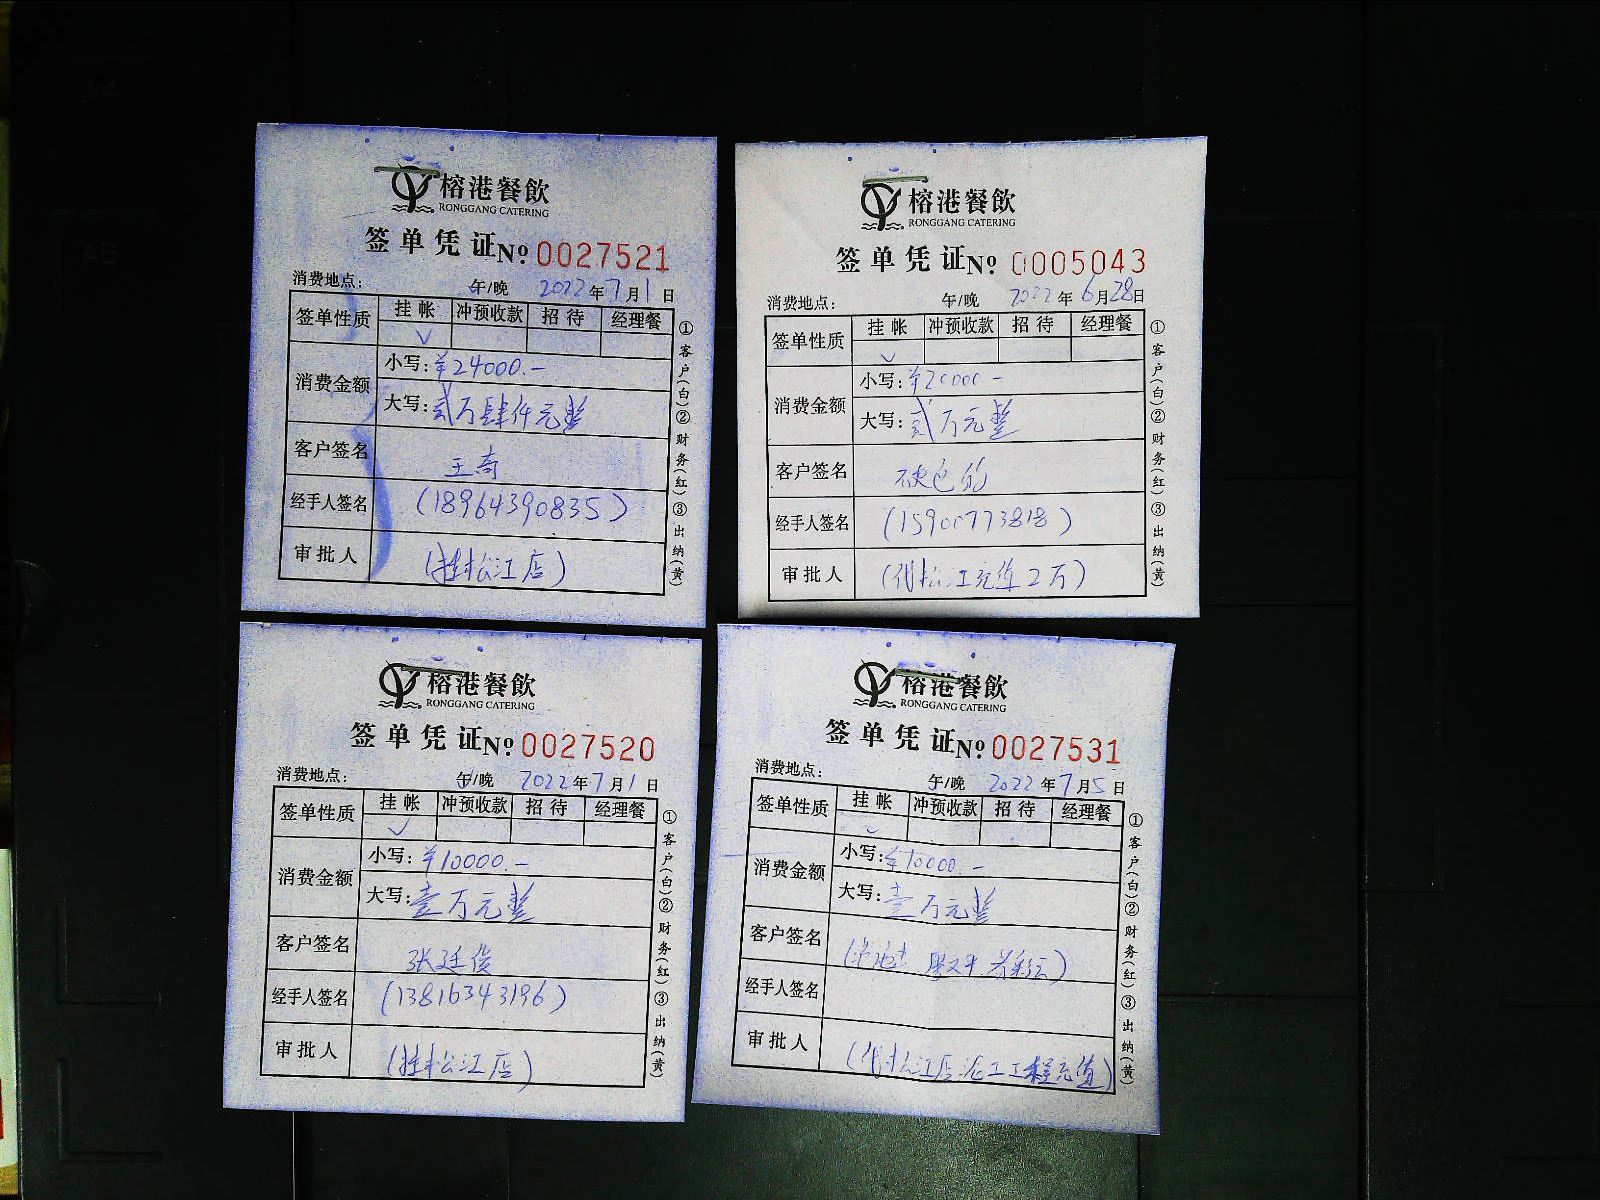 榕港餐飲
RONGGANG CATERING
签单凭证 No 0027521
消费地点: 午/晚 2022年7月1日
签单性质 挂帐 冲预收款 招待 经理餐
√
消费金额 小写:¥24000.-
大写:贰万肆仟元整
客户签名 王奇
经手人签名 (18964390835)
审批人 (挂松江店)
①客户(白)②财务(红)③出纳(黄)
榕港餐飲
RONGGANG CATERING
签单凭证 No 0005043
消费地点: 午/晚 2022年6月28日
签单性质 挂帐 冲预收款 招待 经理餐
√
消费金额 小写:¥20000-
大写:贰万元整
客户签名
经手人签名 (15900773818)
审批人 (代松江充值2万)
①客户(白)②财务(红)③出纳(黄)
榕港餐飲
RONGGANG CATERING
签单凭证 No 0027520
消费地点: 午/晚 2022年7月1日
签单性质 挂帐 冲预收款 招待 经理餐
√
消费金额 小写:¥10000.-
大写:壹万元整
客户签名 张廷俊
经手人签名 (13816343196)
审批人 (挂松江店)
①客户(白)②财务(红)③出纳(黄)
榕港餐飲
RONGGANG CATERING
签单凭证 No 0027531
消费地点: 午/晚 2022年7月5日
签单性质 挂帐 冲预收款 招待 经理餐
√
消费金额 小写:¥10000.-
大写:壹万元整
客户签名
经手人签名
审批人 (代松江店泥工工程充值)
①客户(白)②财务(红)③出纳(黄)